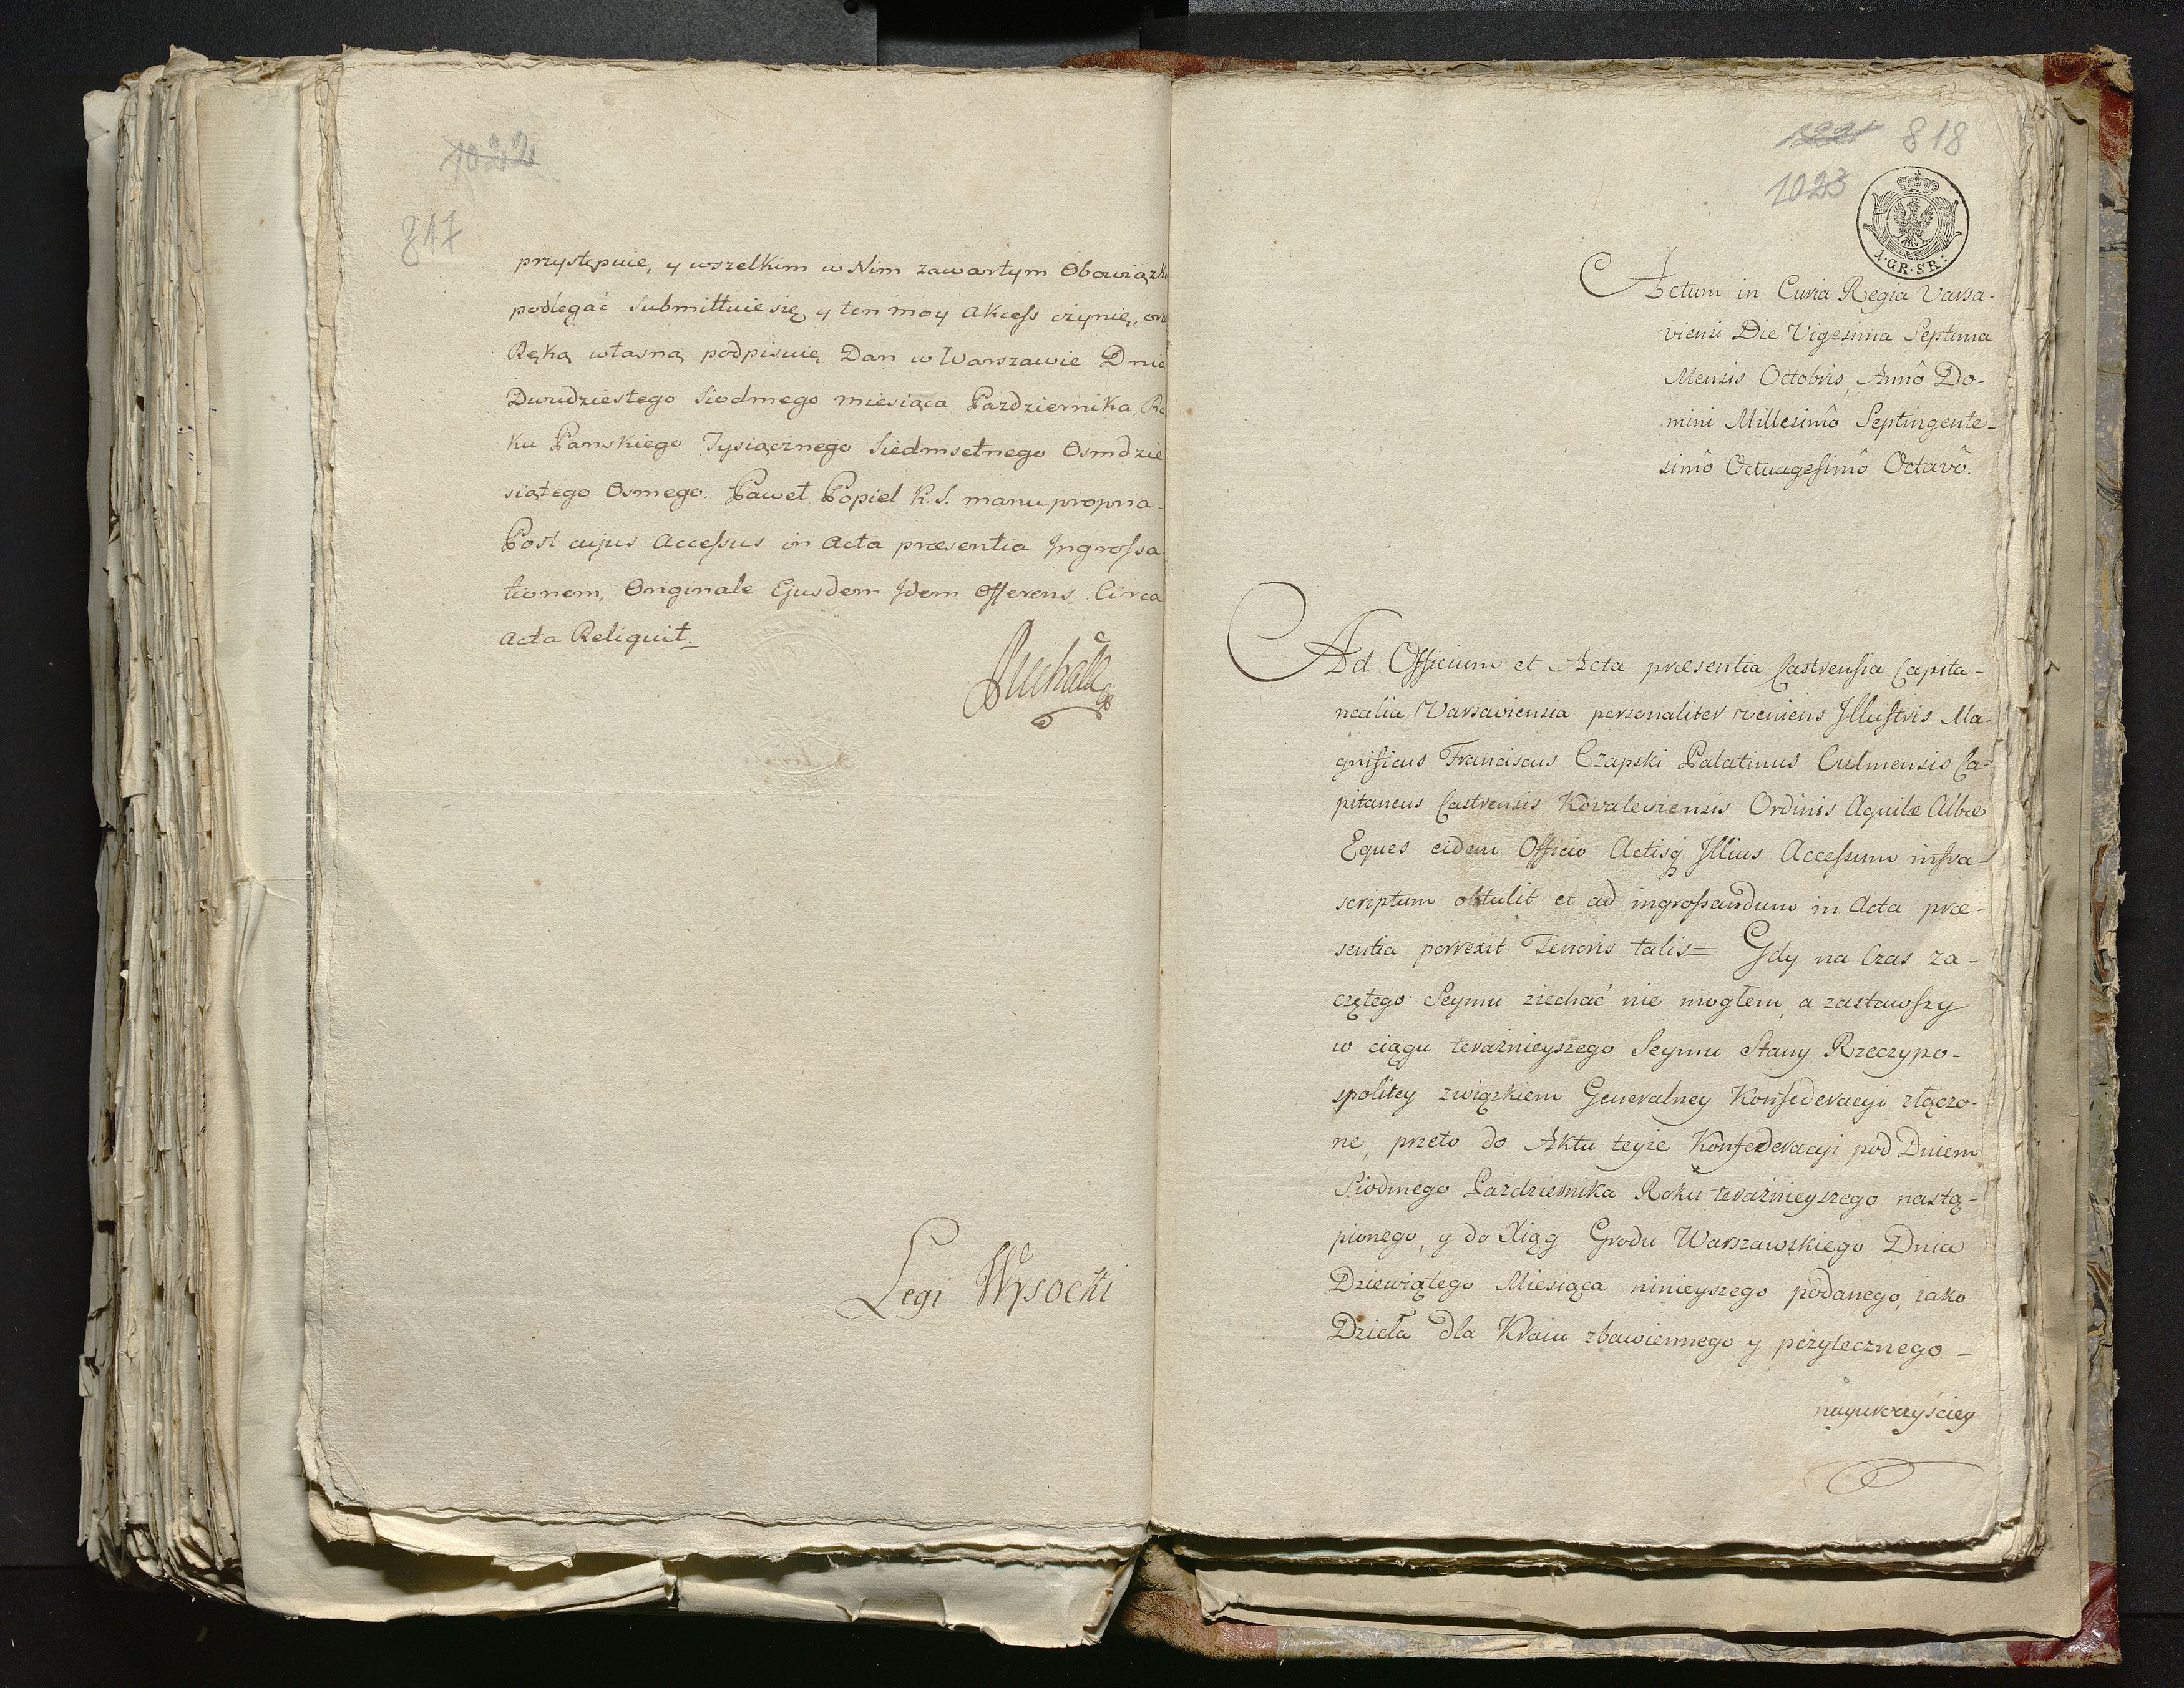 1022
817
przystępuie, y wszelkim w Nim zawartym Obowiązk
podlegać Submittuie się, y ten moy Akcess czynię,
Ręką własną podpisuię. Dan w Warszawie Dnia
Dwudziestego Siodmego miesiąca Pazdziernika, Ro
ku Panskiego Tysiącznego Siedmsetnego Osmdzie
siątego Osmego. Paweł Popiel K. S. manu propria.
Post cujus Accessus in Acta præsentia Ingrossa
tionem, Originale Ejusdem Idem Offerens, Circa
Acta Reliquit.
Legi Wysocki
818
1023
1. GR. SR:
Actum in Curia Regia Varsa-
viensi Die Vigesima Septima
Mensis Octobris, Annô Do-
mini Millesimô Septingente-
simô Octuagesimô Octavô.
Ad Officium et Acta præsentia Castrensia Capita-
nealia Varsaviensia personaliter veniens Illustris Ma-
gnificus Franciscus Czapski Palatinus Culmensis Ca-
pitaneus Castrensis Kovaleviensis Ordinis Aquilæ Albæ
Eques eidem Officio Actisq Illius Accessum infra-
scriptum obtulit et ad ingrossandum in Acta præ-
sentia porrexit Tenoris talis = Gdy na Czas za-
czętego Seymu ziechać nie mogłem, a zastawszy
w ciągu teraźnieyszego Seymu Stany Rzeczypo-
spolitey związkiem Generalney Konfederacyi złączo-
ne, przeto do Aktu teyże Konfederacyi pod Dniem
Siodmego Października Roku teraźnieyszego nastą-
pionego, y do Xiąg Grodu Warszawskiego Dnia
Dziewiątego Miesiąca ninieyszego podanego, iako
Dzieła dla Kraiu zbawiennego y pożytecznego -